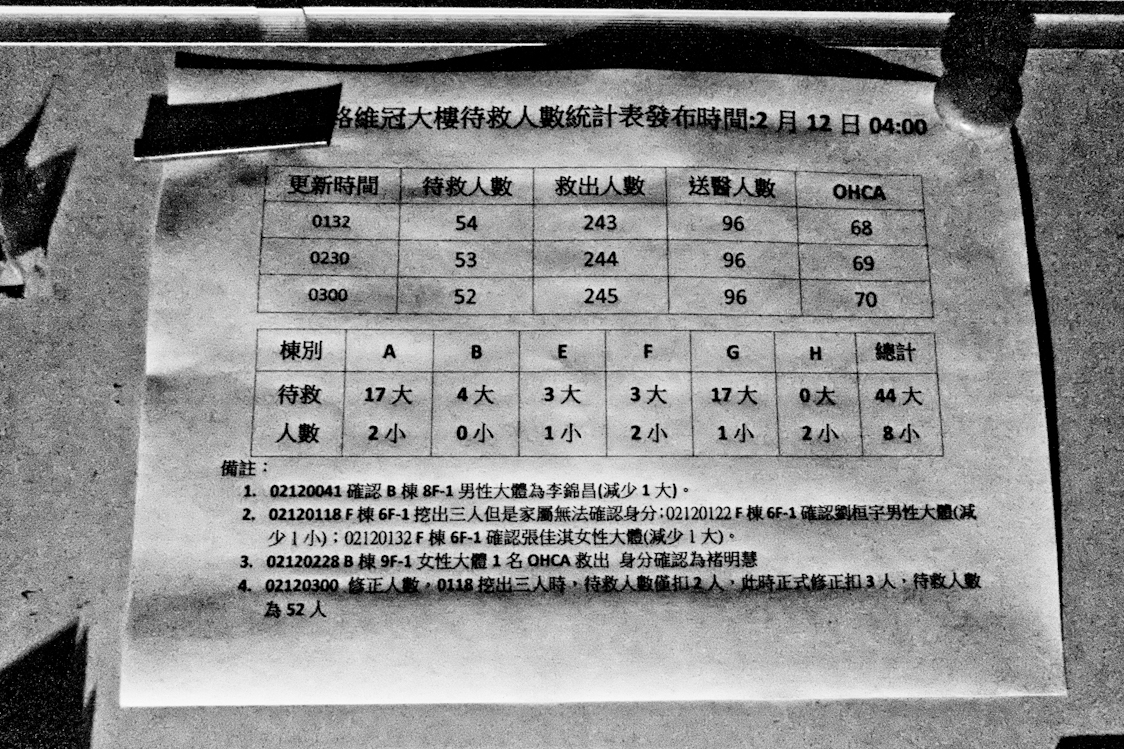 路維冠大樓待救人數統計表發布時間:2 月 12 日 04:00
更新時間 待救人數 救出人數 送醫人數 OHCA
0132 54 243 96 68
0230 53 244 96 69
0300 52 245 96 70
棟別 A B E F G H 總計
待救 17 大 4 大 3 大 3 大 17 大 0 大 44 大
人數 2 小 0 小 1 小 2 小 1 小 2 小 8 小
備註：
1. 02120041 確認 B 棟 8F-1 男性大體為李錦昌(減少 1 大)。
2. 02120118 F 棟 6F-1 挖出三人但是家屬無法確認身分；02120122 F 棟 6F-1 確認劉桓宇男性大體(減
少 1 小)；02120132 F 棟 6F-1 確認張佳淇女性大體(減少 1 大)。
3. 02120228 B 棟 9F-1 女性大體 1 名 OHCA 救出 身分確認為褚明慧
4. 02120300 修正人數，0118 挖出三人時，待救人數僅扣 2 人，此時正式修正扣 3 人，待救人數
為 52 人